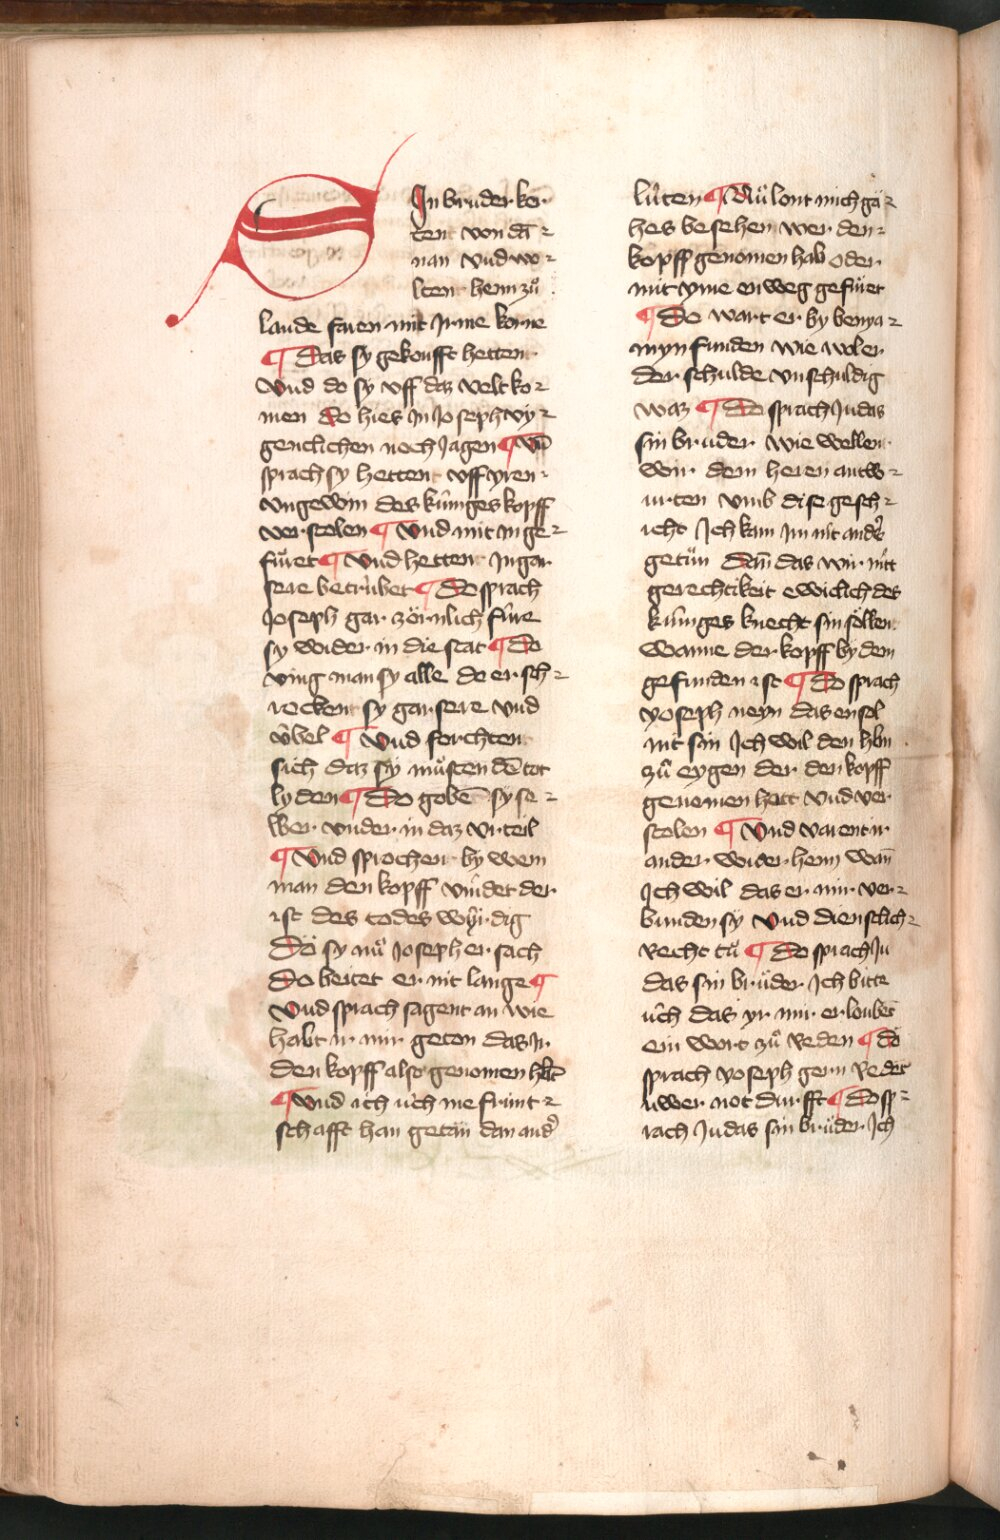 SIn bruder ker
ten von dā
nan vnd wo
lten heim zů
lande faren mit Irme korne
¶ Das sy gekoufft hetten
Vnd do sy vff daz velt ko
men do hies In Joseph vÿ
gentlichen noch Jagen ¶ Vn̄
sprach sy hetten vff yren
vngewin des kúniges kopff
verstolen ¶ Vnd mit In ge
fůret ¶ Vnd hetten In gar
sere betrúbet ¶ Do sprach
Joseph gar zörnlich fúre
sy wider in die stat ¶ Do
ving man sy alle do ersch
rocken sy gar sere vnd
v́bel ¶ Vnd forchten
sich daz sÿ můsten dē tot
lyden ¶ Do gobē sy se
lber vnder in daz vrteil
¶ Vnd sprochen by wem
man den kopff vindet der
ist des todes wv́rdig
Dö sy nů Joseph er sach
Do beitet er nit lange ¶
Vnd sprach sagent an wie
habt ir mir geton das Ir
den kopff also genomen hāt
¶ Vnd ich úch me frúnt
schafft han getän dan and̉
lúten ¶ Nů lont mich gä
hes besehen wer den
kopff genomen hab oder
mit yme enweg gefüret
¶ Do wart er by benya
myn funden wie wol er
der schulde vnschuldig
waz ¶ Do sprach Judas
sin bruder wie wellen
wir dem heren antw
urten vmb dise gesch
icht Ich kan Im nit and̉s
getün dan̄ das wir mitt
gerechtikeit ewiclich des
kúniges knecht sin söllen
Wanne der kopff by dem
gefunden ist ¶ Do sprach
yoseph neyn das ensol
nit sin Ich wil den hān
zů eygen der den kopff
genomen hett vnd ver
stolen ¶ Vnd varent ir
ander wider heim wan̄
Ich wil das er mir ver
bunden sy vnd dienstlich
Recht tů ¶ Do sprach Ju
das sin brüder Ich bitte
úch das yr mir erloubēt
ein wort zů Reden ¶ dö
sprach yoseph gern Redēt
uwer notdurfft ¶ Do sp
rach Judas sin brüder Ich